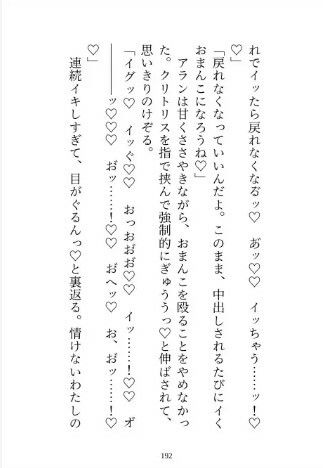 れでイッたら戻れなくなる゛ッ♡　あ゛ッ♡♡　イッちゃう……ッ！♡
♡」
「戻れなくなっていいんだよ。このまま、中出しされるたびにイく
おまんこになろうね♡」
　アランは甘くささやきながら、おまんこを殴ることをやめなかっ
た。クリトリスを指で挟んで強制的にぎゅううっ♡と伸ばされて、
思いきりのけぞる。
「イグッ♡　イッぐ♡♡　おっおお゛お゛♡♡　イッ……！♡♡　オ゛
―――ッ♡♡♡　お゛ッ……！♡♡　お゛へッ♡　お、お゛ッ……！♡♡
♡」
　連続イキしすぎて、目がぐるんっ♡と裏返る。情けないわたしの
192